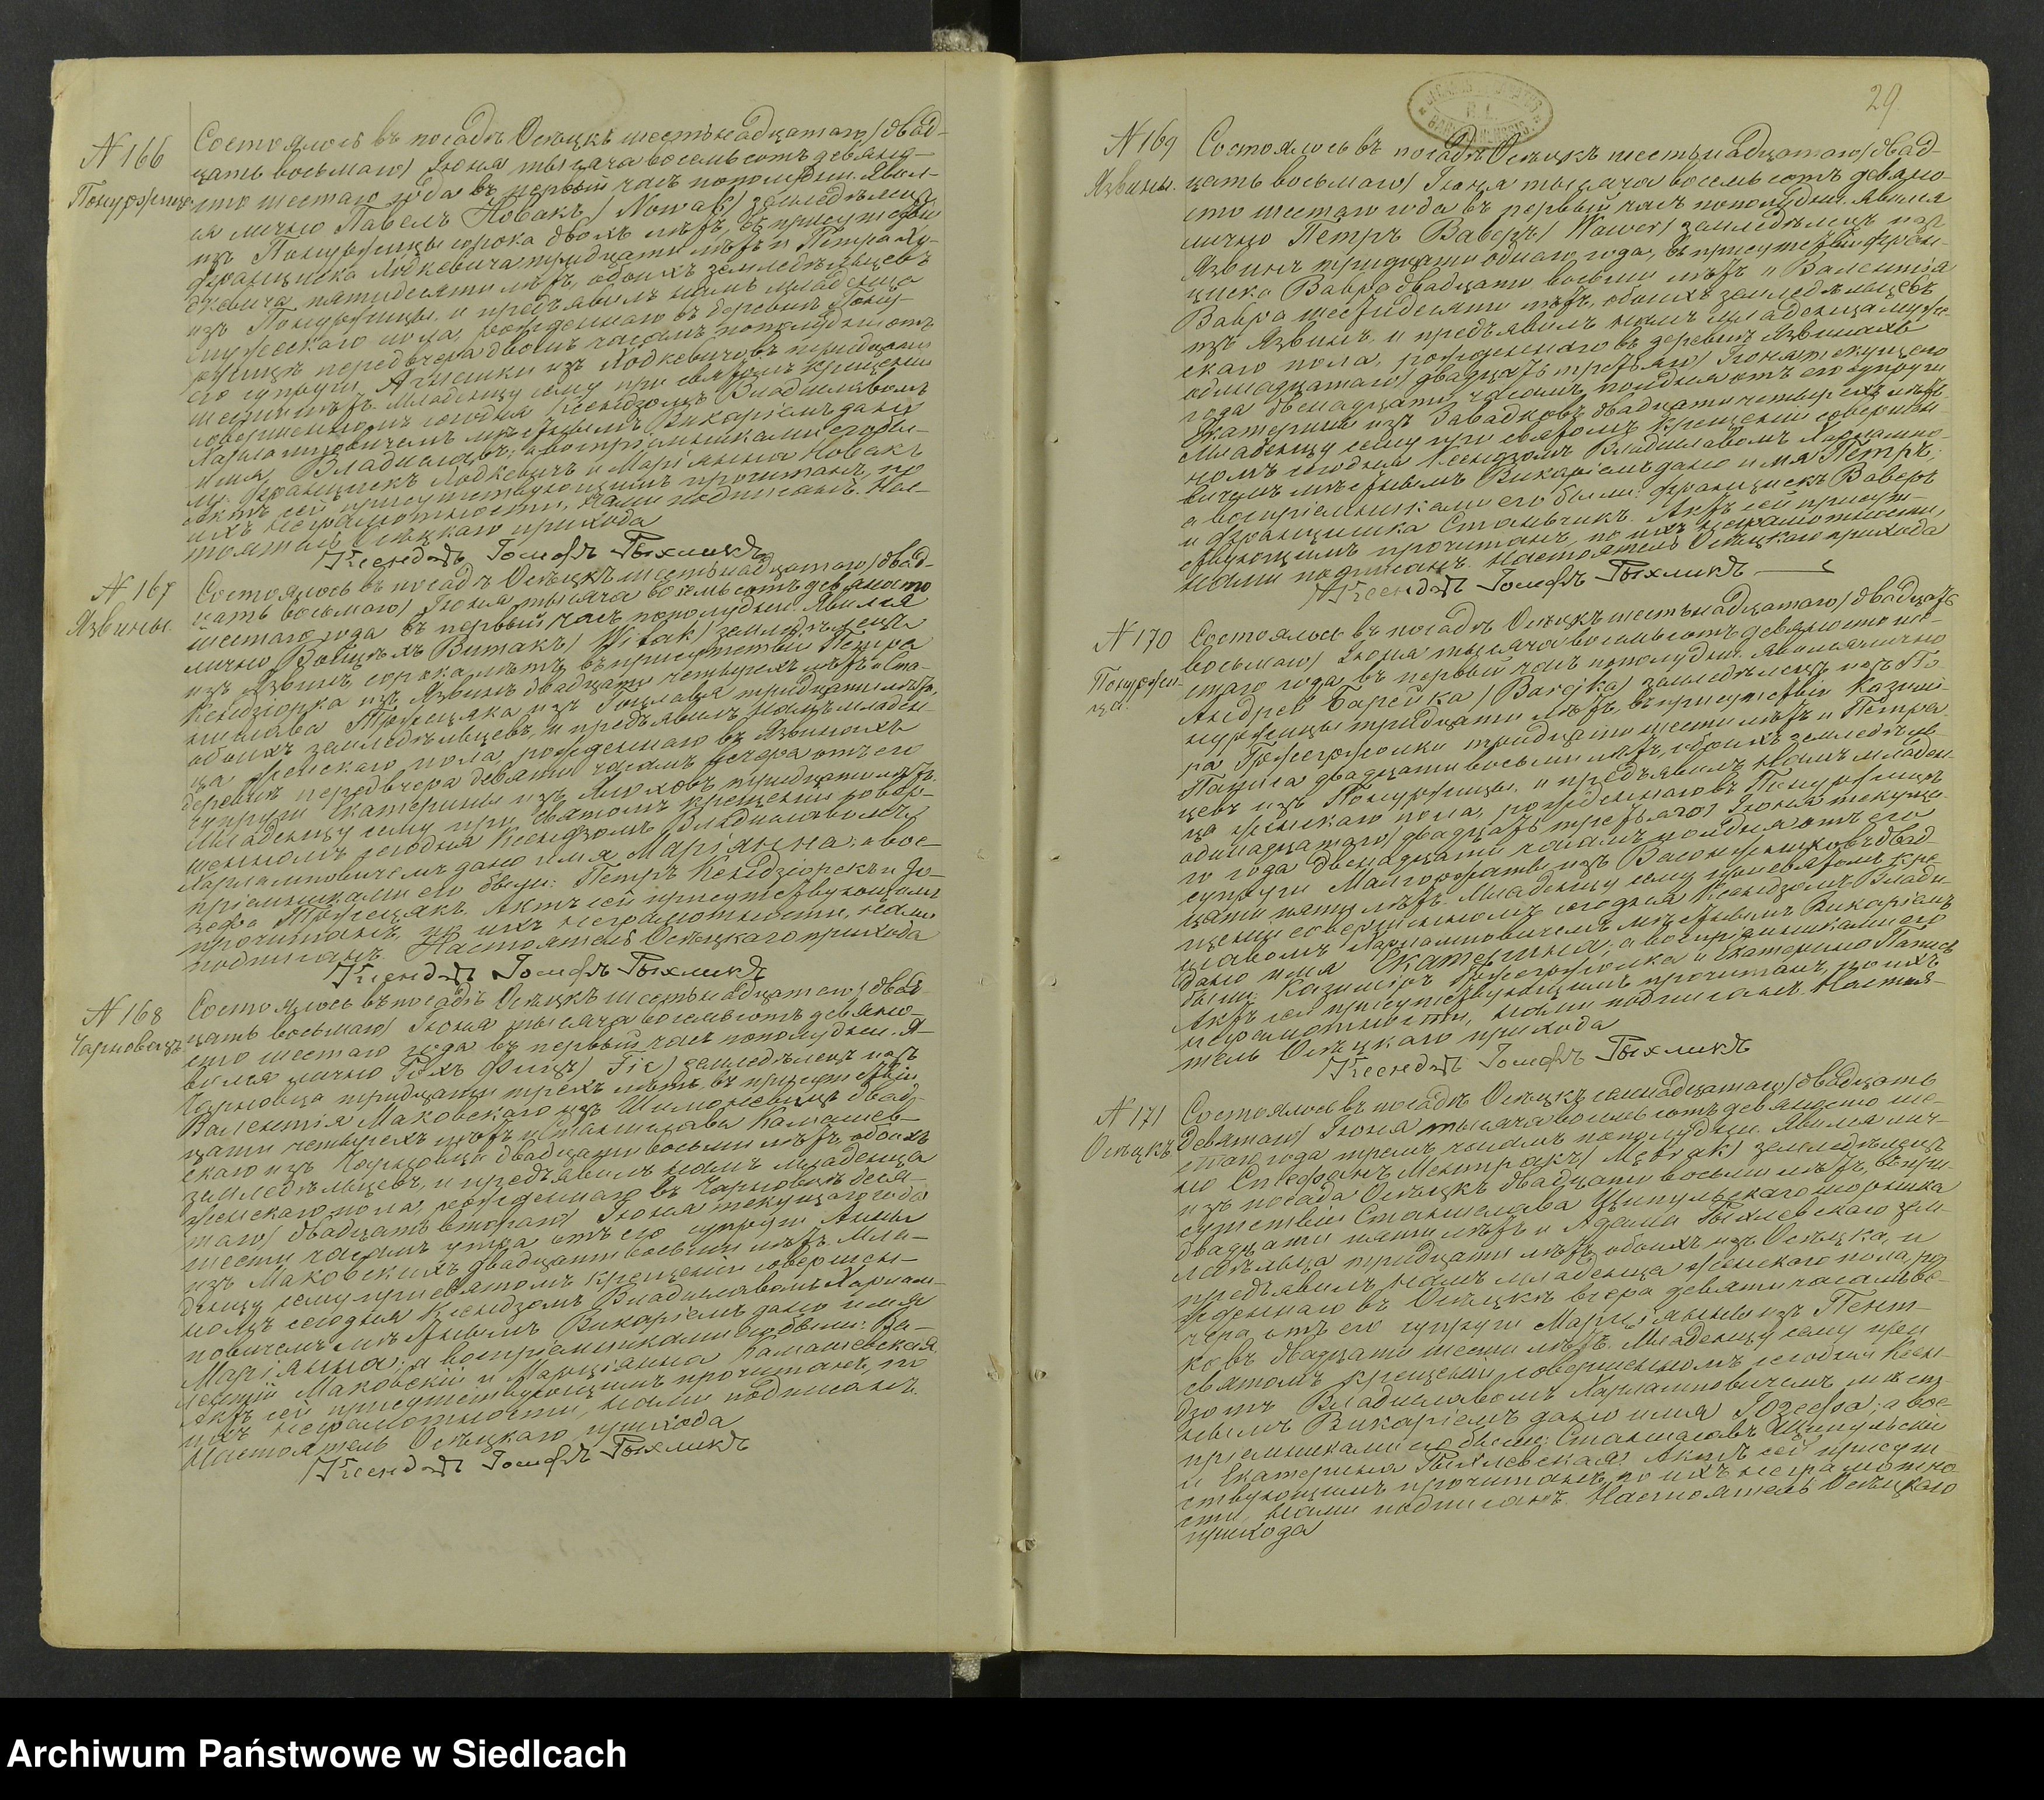 N 166
Понуржица
Состоялось въ посадѣ Осѣцкъ шестьнадцатаго / двад-
цать восьмаго / Іюня тысяча восемьсотъ девяно-
сто шестаго года въ первый часъ пополудни. Явил-
ся лично Павелъ Новакъ / Nowak / земледѣлецъ
изъ Понуржицы сорока двохъ лѣтъ, въ присутствіи
Франциска Лодкевича тридцати лѣтъ и Петра Лу-
дкевича пятидесяти лѣтъ, обоихъ земледѣльцевъ
изъ Понуржицы, и предъявилъ намъ младенца
мужескаго пола, рожденнаго въ деревнѣ Понур-
жицѣ передвчера двомъ часамъ пополудни отъ
его супруги, Агнешки изъ Лодкевичовъ тридцати
шести лѣтъ. Младенцу сему при святомъ крещеніи
совершенномъ сегодня Ксендзомъ Владиславомъ
Харлампновичемъ мѣстнымъ Викаріемъ дано
имя Владиславъ; а воспріемниками его бы-
ли: Францискъ Лодкевичъ и Маріянна Новакъ
Актъ сей присутствующимъ прочитанъ, по
ихъ неграмотности, нами подписанъ. Нас-
тоятель Осѣцкаго прихода
Ксендзъ Іосифъ Рыхликъ
N 167
Язвины.
Состоялось въ посадѣ Осѣцкъ шестьнадцатаго / двад-
цать восьмаго / Іюня тысяча восемьсотъ девяносто
шестаго года въ первый часъ пополудни. Явился
лично Войцѣхъ Витакъ / Witak / земледѣлецъ
изъ Язвинъ, сорока лѣтъ, въ присутствіи Петра
Кендзіорка изъ Язвинъ двадцати четырехъ лѣтъ и Ста-
нислава Тржецяка изъ тридцати лѣтъ,
обоихъ земледѣльцевъ, и предъявилъ намъ младен-
ца женскаго пола, рожденнаго въ Язвинахъ
деревнѣ передвчера девяти часамъ вечера отъ его
супруги Екатерины изъ тридцати лѣтъ.
Младенцу сему при святомъ крещеніи совер-
шенномъ сегодня Ксендзомъ Владиславомъ
Харлампновичемъ дано имя Маріянна; а вос-
пріемниками его были: Петръ Кендзіорекъ и Іо-
зефа Тржецякъ. Актъ сей присутствующимъ
прочитанъ, по ихъ неграмотности, нами
подписанъ. Настоятель Осѣцкаго прихода
Ксендзъ Іосифъ Рыхликъ
N 168
Чарновецъ
Состоялось въ посадѣ Осѣцкъ шестьнадцатаго / двад-
цать восьмаго / Іюня тысяча восемьсотъ девяно-
сто шестаго года въ первый часъ пополудни. Я-
вился лично Рохъ Фицъ / Fic / земледѣлецъ изъ
Чарновца тридцати трехъ лѣтъ, въ присутствіи
Валентія Маковскаго изъ двад-
цати четырехъ лѣтъ и Станислава Камашев-
скаго изъ Чарновца двадцати восьми лѣтъ, обоихъ
земледѣльцевъ, и предъявилъ намъ младенца
женскаго пола, рожденнаго въ Чарновцѣ деся-
таго / двадцать втораго / Іюня текущаго года
шести часамъ утра отъ его супруги Анны
изъ Маковскихъ двадцати восьми лѣтъ. Мла-
денцу сему при святомъ крещеніи совершен-
номъ сегодня Ксендзомъ Владиславомъ Харлам-
пновичемъ мѣстнымъ Викаріемъ дано имя
Маріянна; а воспріемниками его были: Ва-
лентій Маковскій и Марціанна Камашевская.
Актъ сей присутствующимъ прочитанъ, по
ихъ неграмотности, нами подписанъ.
Настоятель Осѣцкаго прихода
Ксендзъ Іосифъ Рыхликъ
29.
N 169
Язвины.
Состоялось въ посадѣ Осѣцкъ шестьнадцатаго / двад-
цать восьмаго / Іюня тысяча восемьсотъ девяно-
сто шестаго года въ первый часъ пополудни. Явился
лично Петръ Ваверъ / Wawer / земледѣлецъ изъ
Язвинъ тридцати одного года, въ присутствіи Фран-
циска Вавра двадцати восьми лѣтъ и Валентія
Вавра шестидесяти лѣтъ, обоихъ земледѣльцевъ
изъ Язвинъ, и предъявилъ намъ младенца муже-
скаго пола, рожденнаго въ деревнѣ Язвинахъ
одиннадцатаго / двадцать третьяго / Іюня текущаго
года двенадцати часамъ полдня отъ его супруги
Екатерины изъ Завадковъ двадцати четырехъ лѣтъ.
Младенцу сему при святомъ крещеніи соверше-
номъ сегодня Ксендзомъ Владиславомъ Харлампно-
вичемъ мѣстнымъ Викаріемъ дано имя Петръ;
а воспріемниками его были: Францискъ Ваверъ
и Францишка Станьчикъ. Актъ сей присут-
ствующимъ прочитанъ, по ихъ неграмотности,
нами подписанъ. Настоятель Осѣцкаго прихода
Ксендзъ Іосифъ Рыхликъ
N 170
Понуржи-
ца.
Состоялось въ посадѣ Осѣцкъ шестьнадцатаго / двадцать
восьмаго / Іюня тысяча восемьсотъ девяносто ше-
стаго года, въ первый часъ пополудни. Явился лично
Андрей Барейка / Barejka / земледѣлецъ изъ По-
нуржицы тридцати лѣтъ, въ присутствіи Казимі-
ра Гржегржолки тридцати шести лѣтъ и Петра
Паписа двадцати восьми лѣтъ, обоихъ земледѣль-
цевъ изъ Понуржицы, и предъявилъ намъ младен-
ца женскаго пола, рожденнаго въ Понуржицѣ
одиннадцатаго / двадцать третьяго / Іюня текуща-
го года двенадцати часамъ полдня отъ его
супруги Малгоржаты изъ двад-
цати пяти лѣтъ. Младенцу сему при святомъ кре-
щеніи совершенномъ сегодня Ксендзомъ Влади-
славомъ Харлампновичемъ мѣстнымъ Викаріемъ
дано имя Екатерина, а воспріемниками его
были: Казимиръ Гржегржолка и Екатерина Паписъ
Актъ сей присутствующимъ прочитанъ, по ихъ
неграмотности, нами подписанъ. Настоя-
тель Осѣцкаго прихода
Ксендзъ Іосифъ Рыхликъ
N 171
Осѣцкъ
Состоялось въ посадѣ Осѣцкъ семнадцатаго / двадцать
девятаго / Іюня тысяча восемьсотъ девяносто ше-
стаго года тремъ часамъ пополудни. Явился лич-
но Стефанъ Ментракъ / Mętrak / земледѣлецъ
изъ посада Осѣцкъ двадцати восьми лѣтъ, въ при-
сутствіи Станислава Щипульскаго
двадцати пяти лѣтъ и Адама Рыхлевскаго зем-
ледѣльца тридцати лѣтъ, обоихъ изъ Осѣцка, и
предъявилъ намъ младенца женскаго пола, ро-
жденнаго въ Осѣцкѣ вчера девяти часамъ ве-
чера отъ его супруги Маріянны изъ Пент-
ковъ двадцати шести лѣтъ. Младенцу сему при
святомъ крещеніи совершенномъ сегодня Ксен-
дзомъ Владиславомъ Харлампновичемъ мѣст-
нымъ Викаріемъ дано имя Іозефа; а вос-
пріемниками его были: Станиславъ Щипульскій
и Екатерина Рыхлевская. Актъ сей присут-
ствующимъ прочитанъ, по ихъ неграмотно-
сти, нами подписанъ. Настоятель Осѣцкаго
прихода
Archiwum Państwowe w Siedlcach